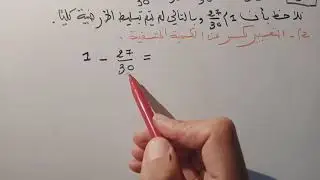 نلاحظ بأن 1 ≠ 27/30 وبالتالي لم يتم تسليط الأرضية كليا.
التعبير كسر عن الكمية المتبقية
1 - 27/30 =